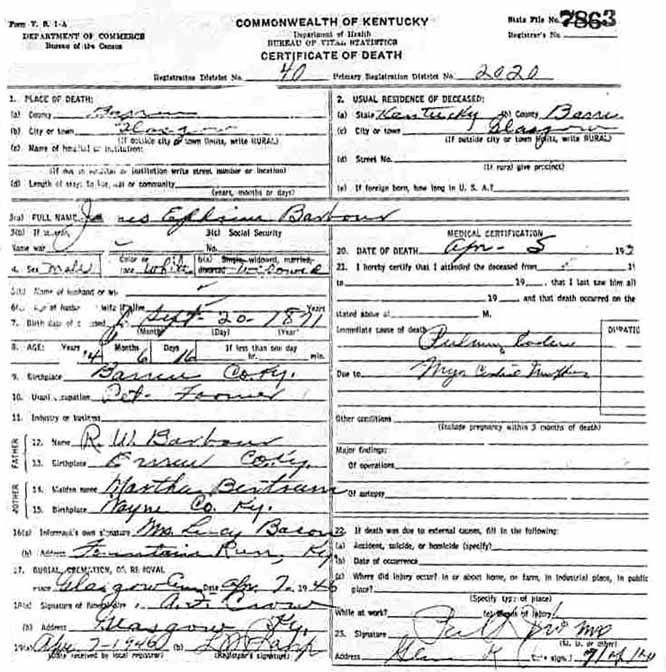 Form V. S. 1-A
DEPARTMENT OF COMMERCE
Bureau of the Census
COMMONWEALTH OF KENTUCKY
Department of Health
BUREAU OF VITAL STATISTICS
CERTIFICATE OF DEATH
State File No. 7863
Registrar's No.
Registration District No. 40 Primary Registration District No. 2020
1. PLACE OF DEATH:
(a) County Barren
(b) City or town Glasgow
(If outside city or town limits, write RURAL)
(c) Name of hospital or institution:
(If not in hospital or institution write street number or location)
(d) Length of stay: In hosp. or community
(years, months or days)
2. USUAL RESIDENCE OF DECEASED:
(a) State Kentucky (b) County Barren
(c) City or town Glasgow
(If outside city or town limits, write RURAL)
(d) Street No.
(If rural give precinct)
(e) If foreign born, how long in U. S. A.?
3(a) FULL NAME James Ephraim Barbour
3(b) If veteran, 3(c) Social Security
Name war No.
4. Sex Male 5. Color or race White 6(a) Single, widowed, married, divorced Widowed
6(b) Name of husband or wife
6(c) Age of husband or wife if alive Years
7. Birth date of deceased Sept - 20 - 1871
(Month) (Day) (Year)
8. AGE: Years 74 Months 6 Days 16 If less than one day
hr. min.
9. Birthplace Barren Co. Ky.
10. Usual occupation Ret. Farmer
11. Industry or business
FATHER
12. Name R. W. Barbour
13. Birthplace Co. Ky.
MOTHER
14. Maiden name Martha Bertram
15. Birthplace Wayne Co. Ky.
16(a) Informant's own signature Mrs. Lucy Bacon
(b) Address Fountain Run, Ky.
17. BURIAL, CREMATION, OR REMOVAL
Place Glasgow Cem Date Apr. 7 - 1946
18(a) Signature of funeral dir. Crow
(b) Address Glasgow Ky.
19(a) Apr 7 - 1946
(Date received by local registrar) (Registrar's signature)
MEDICAL CERTIFICATION
20. DATE OF DEATH Apr - 5 19
21. I hereby certify that I attended the deceased from 19
to 19 , that I last saw him alive
on 19 and that death occurred on the
stated above at M.
DURATION
Immediate cause of death
Due to
Other conditions
(Include pregnancy within 3 months of death)
Major findings:
Of operations
Of autopsy
22. If death was due to external causes, fill in the following:
(a) Accident, suicide, or homicide (specify)
(b) Date of occurrence
(c) Where did injury occur? in or about home, on farm, in industrial place, in public
place?
(Specify type of place)
While at work? (e) Means of injury
23. Signature
(M. D. or other)
Address